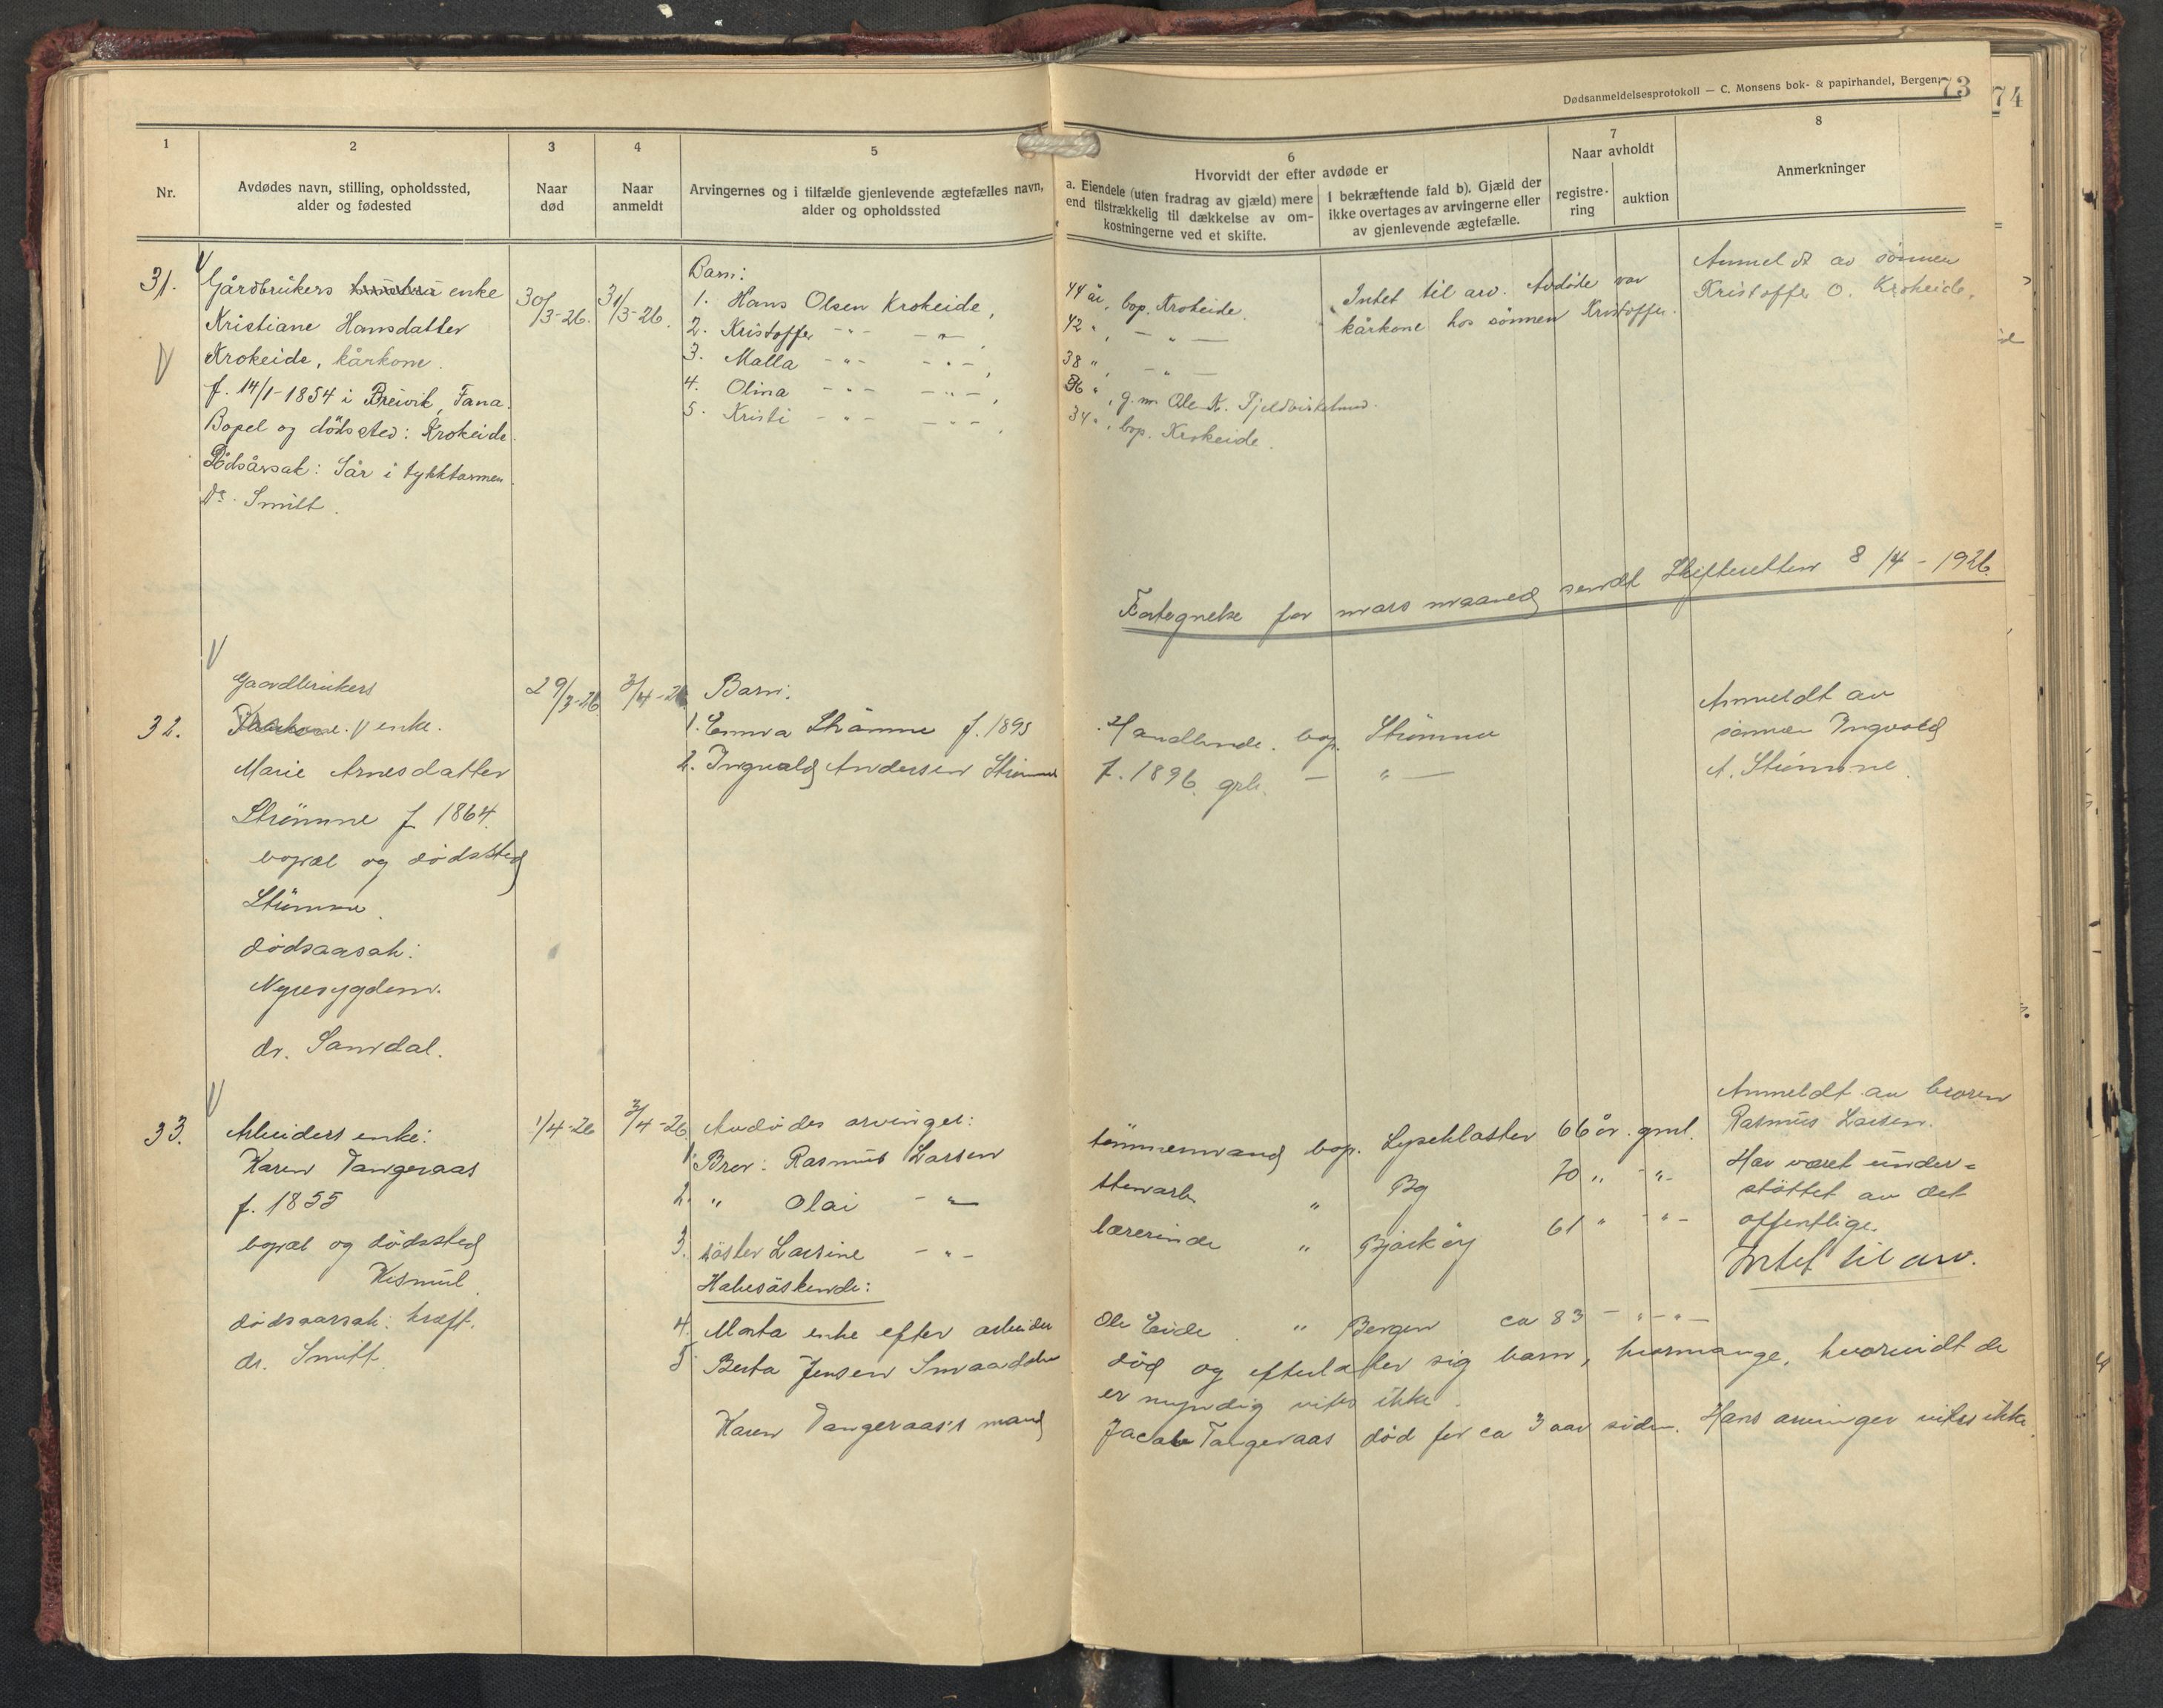 Dødsanmeldelsesprotokoll — C. Monsens bok- & papirhandel, Bergen.
73
74
1
Nr.
2
Avdødes navn, stilling, opholdssted,
alder og fødested
3
Naar
død
4
Naar
anmeldt
5
Arvingernes og i tilfælde gjenlevende ægtefælles navn,
alder og opholdssted
6
Hvorvidt der efter avdøde er
a. Eiendele (uten fradrag av gjæld) mere
end tilstrækkelig til dækkelse av om-
kostningerne ved et skifte.
I bekræftende fald b). Gjæld der
ikke overtages av arvingerne eller
av gjenlevende ægtefælle.
7
Naar avholdt
registre-
ring
auktion
8
Anmerkninger
31.
Gårdbrukers enke
Kristiane Hansdatter
Krokeide, kårkone.
f. 14/1-1854 i Breivik, Fana.
Bopel og dödsted: Krokeide.
Dödsårsak: Sår i tykktarmen
Dr. Smitt.
30/3-26.
31/3-26.
Barn:
1. Hans Olsen Krokeide, 44 år, bop. Krokeide.
2. Kristoffer -"- -"-, 42 ", - " -
3. Malla -"- -"-, 38 ", - " -
4. Olina -"- -"-, 36 ", g.m. Ole K. Fjeldbirkelund.
5. Kristi -"- -"-, 34 ", bop. Krokeide.
Intet til arv. Avdöde var
kårkone hos sönnen Kristoffer.
Anmeldt av sönnen
Kristoffer O. Krokeide.
Fortegnelse for mars maaned sendt Skifteretten 8/4-1926.
32.
Gaardbrukers
enke.
Marie Arnesdatter
Strömme f. 1864.
bopæl og dødssted
Strömme.
dødsaarsak:
Nyresygdom.
dr. Sandal.
29/3-26
3/4-26
Barn:
1. Emma Strömme f. 1895 Handlende. bop. Strömme
2. Ingvald Andersen Strömme f. 1896. grb. - " -
Anmeldt av
sönnen Ingvald
A. Strömme.
33.
Arbeiders enke:
Karen Tangeraas
f. 1855
bopæl og dødssted
Kismul.
dødsaarsak: kræft.
dr. Smitt.
1/4-26
3/4-26
Avdødes arvinger:
1. Bror: Rasmus Larsen tömmermand bop. Lysekloster 66 år. gml.
2. " Olai - " - stenarb. " Bg 70 " - " -
3. söster Larsine - " - lærerinde " Bjarköy 61 " - " -
Halvsöskende:
4. Marta enke efter arbeider Ole Eide. " Bergen ca 83 - " - " -
5. Berta Jensen død og efterlater sig barn, hvormange, hvorvidt de
er myndig vites ikke.
Karen Tangeraas's mand Jacob Tangeraas død for ca 3 aar siden. Hans arvinger vites ikke.
Anmeldt av broren
Rasmus Larsen.
Har været under=
stöttet av det
offentlige.
Intet til arv.